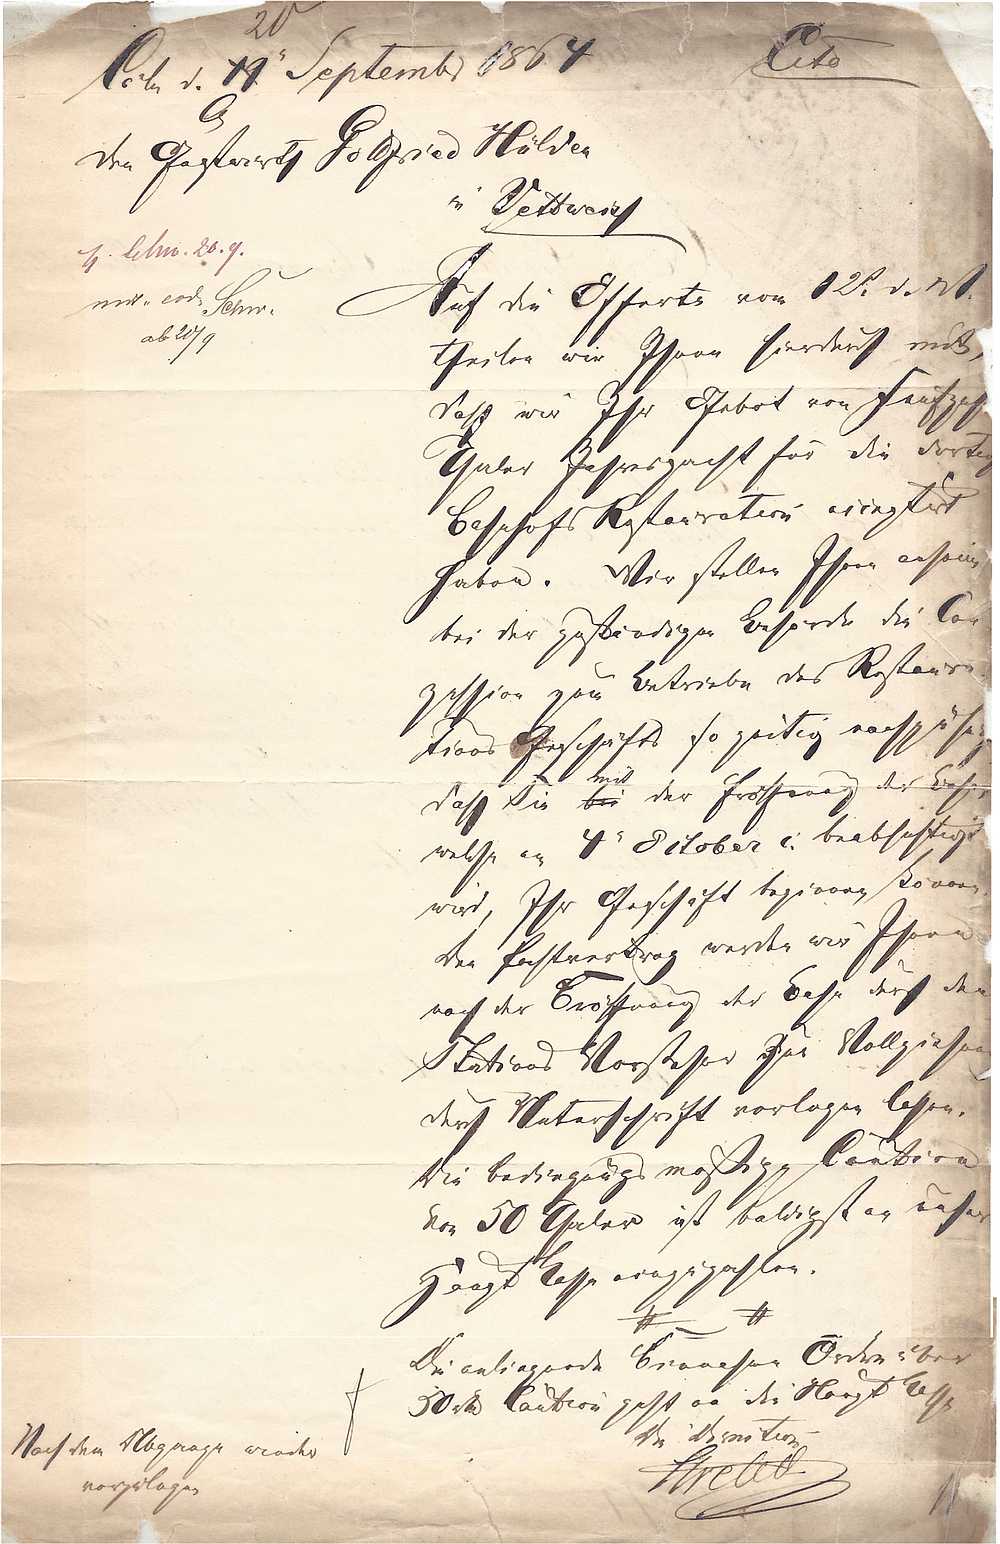 20
Cöln d. 19ᵗ September 1864
Cito
den Gastwirth Gottfried Hülden
in Vettweiß
Schw. 20.9.
Schw.
ab 20/9
Auf die Offerte vom 12ᵗ d. M.
theilen wir Ihnen hierdurch mit,
daß wir Ihr Gebot von Fünfzehn
Thaler Jahrespacht für die dortig
Bahnhofs Restauration
haben. Wir stellen Ihnen anheim
bei der zuständigen Behörde die Con
zession zum Betriebe des Restaura
tions Geschäfts so zeitig nachzusuchen
daß Sie bei mit der Eröffnung der Bahn
welche am 4ᵗ October c. beabsichtigt
wird, Ihr Geschäft beginnen können.
Den Pachtvertrag werden wir Ihnen
nach der Eröffnung der Bahn durch den
Stations Vorsteher zur Vollziehung
durch Unterschrift vorlegen lassen.
Die bedingungsmäßige Caution
von 50 Thaler ist baldigst an unsere
Haupt Casse einzuzahlen.
Die anliegende Einnahme Ordre über
50 Caution geht an die Haupt Casse
Die Direction
Nach dem Abgange wieder
vorzulegen